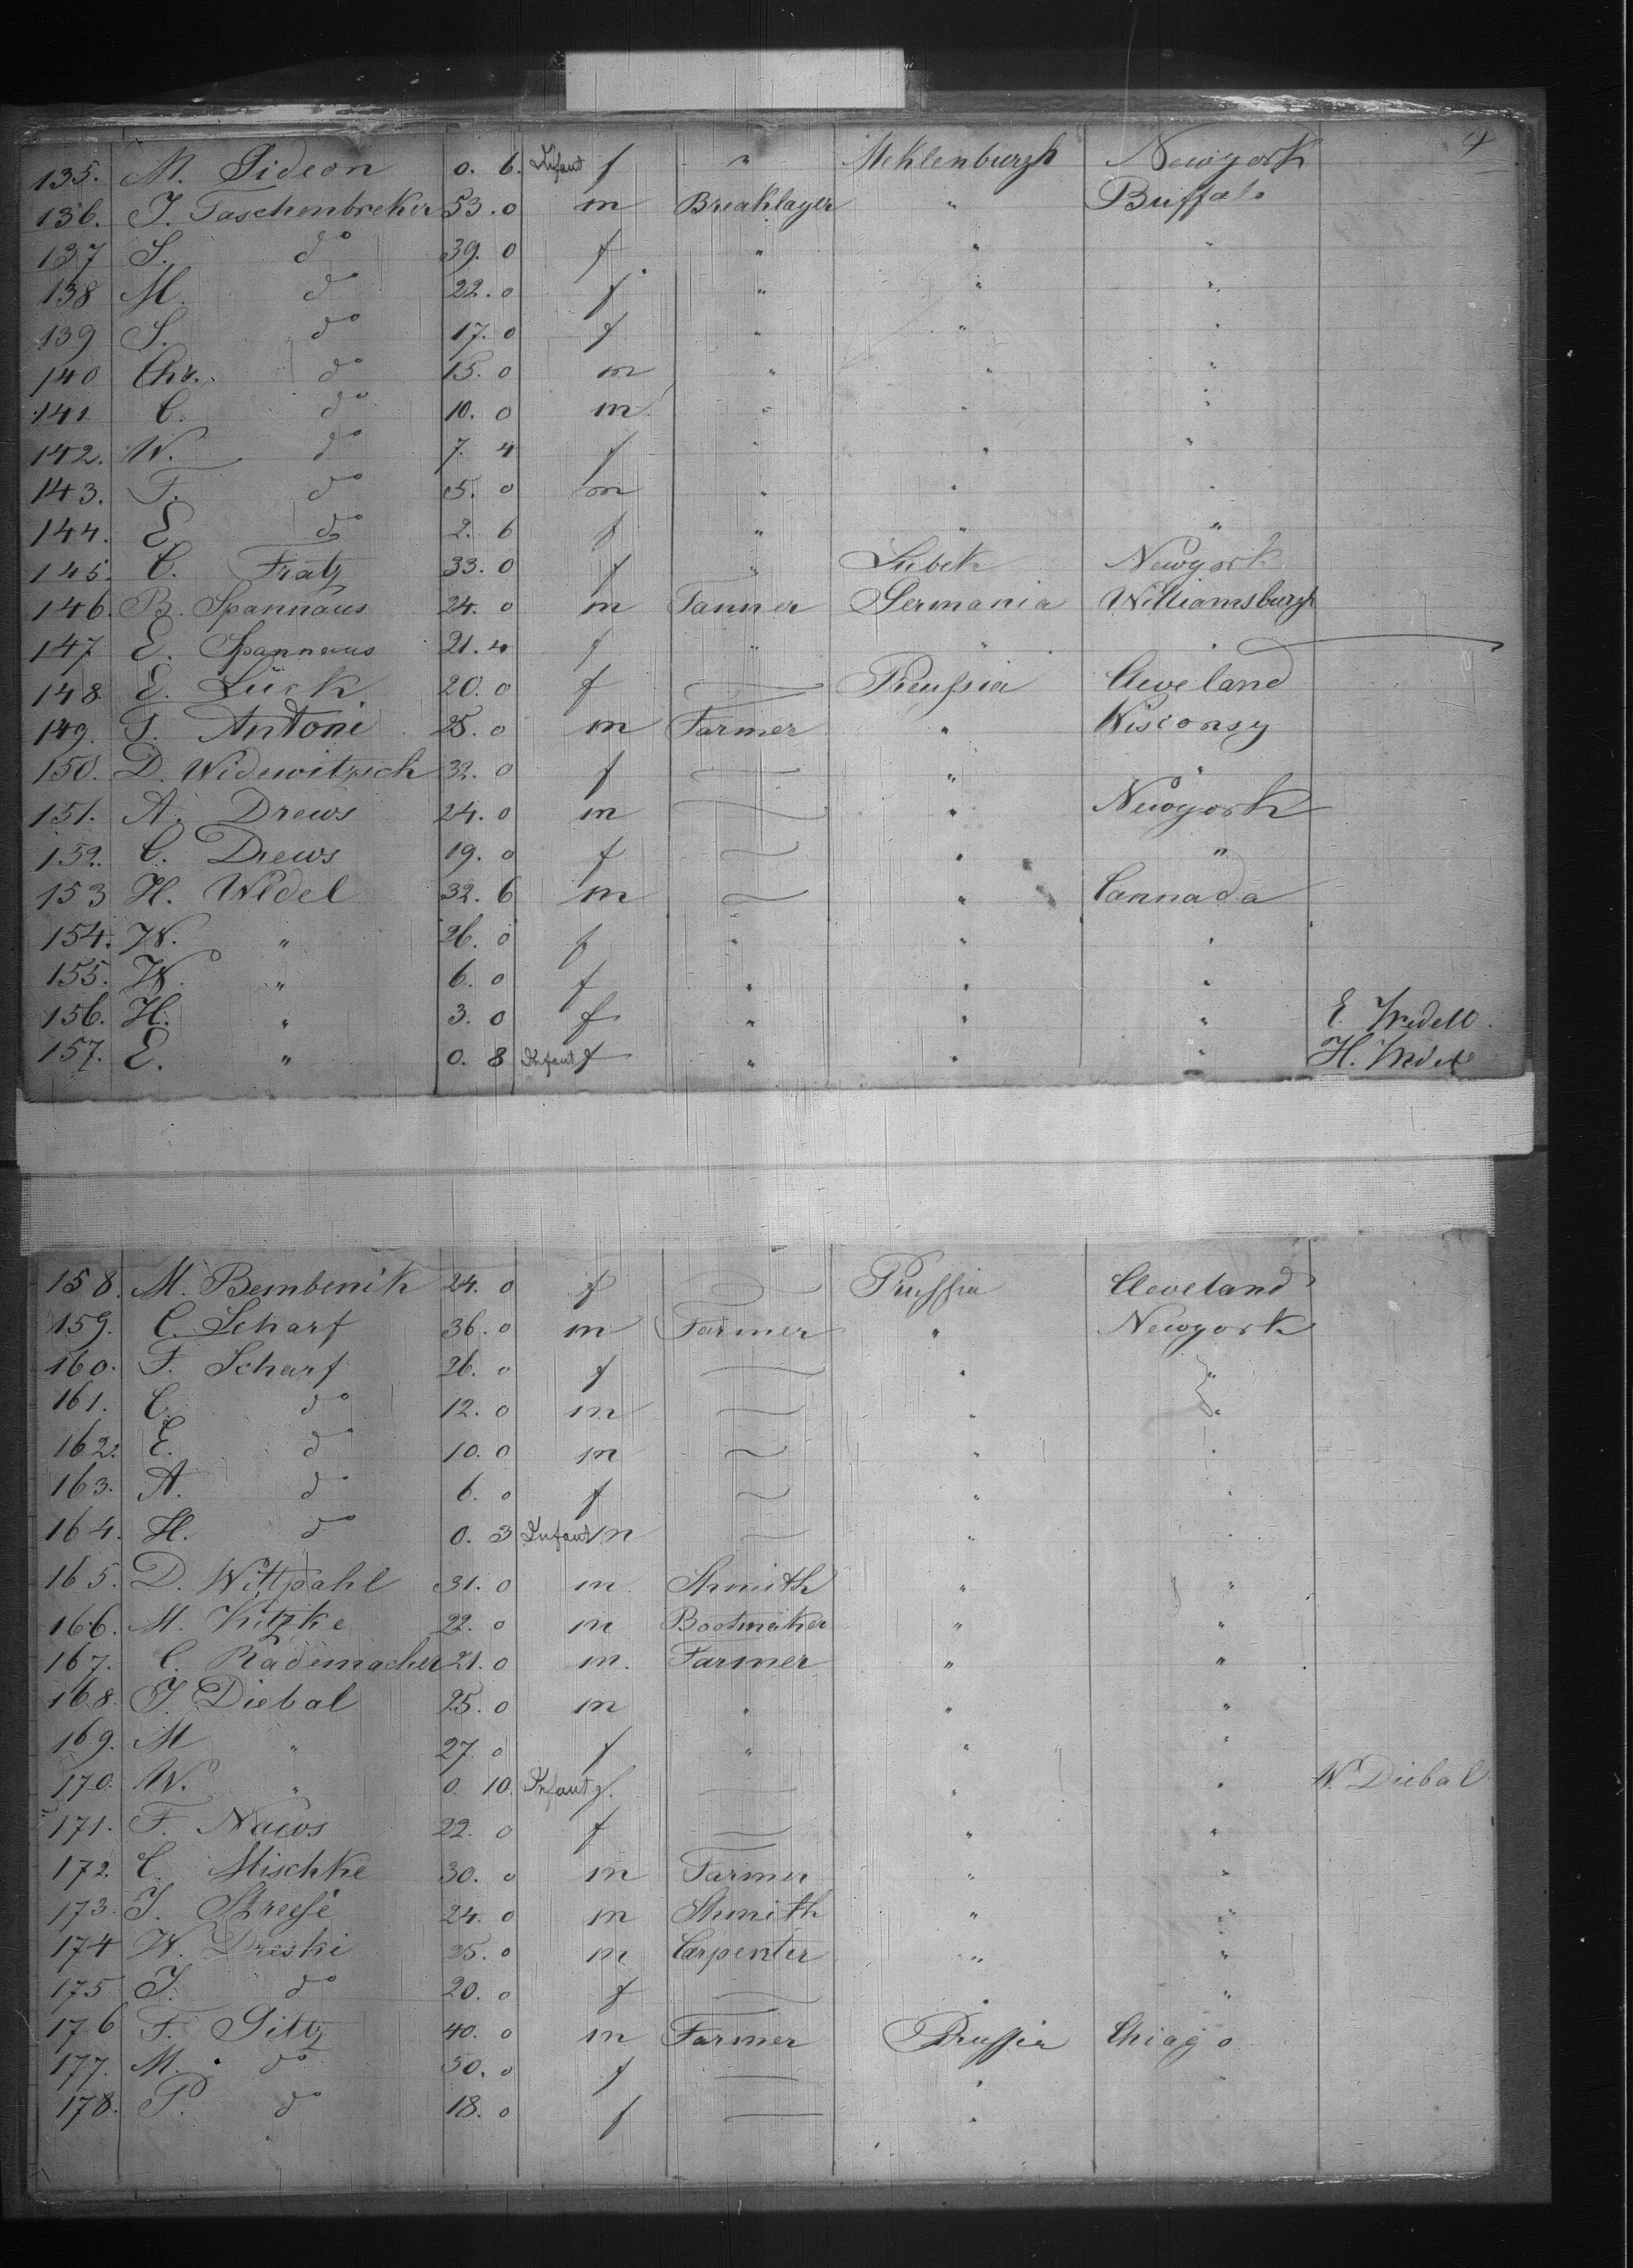 4
135. M. Gideon 0. 6. Infant f " Meklenburgh Newyork
136. J. Taschenbreker 53. 0 m Breaklayer " Buffalo
137 S. do 39. 0 f " " "
138 M. do 22. 0 f " " "
139 S. do 17. 0 f " " "
140 Chr. do 15. 0 m " " "
141 C. do 10. 0 m " " "
142. W. do 7. 4 f " " "
143. F. do 5. 0 m " " "
144. E. do 2. 6 f " " "
145. C. Fratz 33. 0 f " Lubek Newyork
146. B. Spannaus 24. 0 m Tanner Germania Williamsburgh
147 E. Spannaus 21. 4 f " " "
148 E. Lück 20. 0 f — Preussia Cleveland
149. T. Antoni 25. 0 m Farmer " Wisconsy
150. D. Widewitzsch 32. 0 f — " "
151. A. Drews 24. 0 m — " Newyork
152. C. Drews 19. 0 f — " "
153 H. Widel 32. 6 m — " Cannada
154. W. " 26. 0 f " " "
155. W. " 6. 0 f " " "
156. H. " 3. 0 f " " " E.
157. E. " 0. 8 Infant f " " " H.
158. M. Bembenik 24. 0 f — Prussia Cleveland
159. C. Scharf 36. 0 m Farmer " Newyork
160. F. Scharf 26. 0 f — " "
161. C. do 12. 0 m — " "
162. E. do 10. 0 m — " "
163. A. do 6. 0 f — " "
164. H. do 0. 3 Infant m — " "
165. D. Wittpahl 31. 0 m Shmith " "
166. M. Kitzke 22. 0 m Bootmaker " "
167. C. Rademacher 21. 0 m. Farmer " "
168. J. Diebal 25. 0 m " " "
169. M " 27 0 f " " "
170. W. " 0. 10. Infant f. — " " W. Diebal
171. F. Naws 22. 0 f — " "
172. C. Mischke 30. 0 m Farmer " "
173. J. Streese 24. 0 m Shmith " "
174 W. Dreski 25. 0 m Carpenter " "
175 J. do 20. 0 f — " "
176 F. Gitz 40. 0 m Farmer Prussia Chiago
177. M. do 50. 0 f — " "
178. P. do 18. 0 f — " "